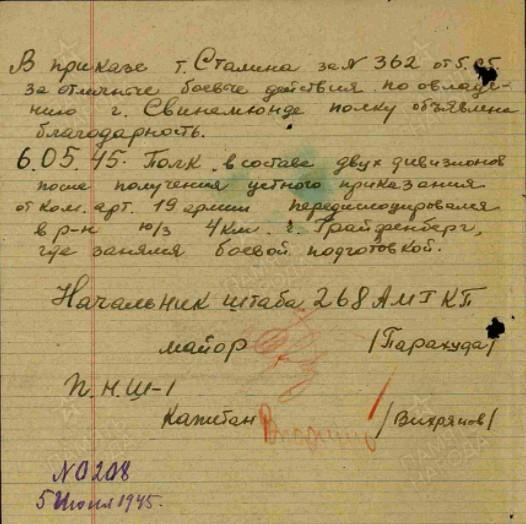 В приказе т. Сталина за N 362 от 5.05
за отличные боевые действия по овладе-
нию г. Свинемюнде полку объявлена
благодарность.
6.05.45. Полк в составе двух дивизионов
после получения устного приказания
от ком. арт. 19 армии передислоцировался
в р-н ю/з 4 км. г. Грайфенберг,
где занялся боевой подготовкой.
Начальник штаба 268 АМТКП
майор /Паракуда/
П.Н.Ш-1
Капитан /Вихрянов/
N 0208
5 Июня 1945.